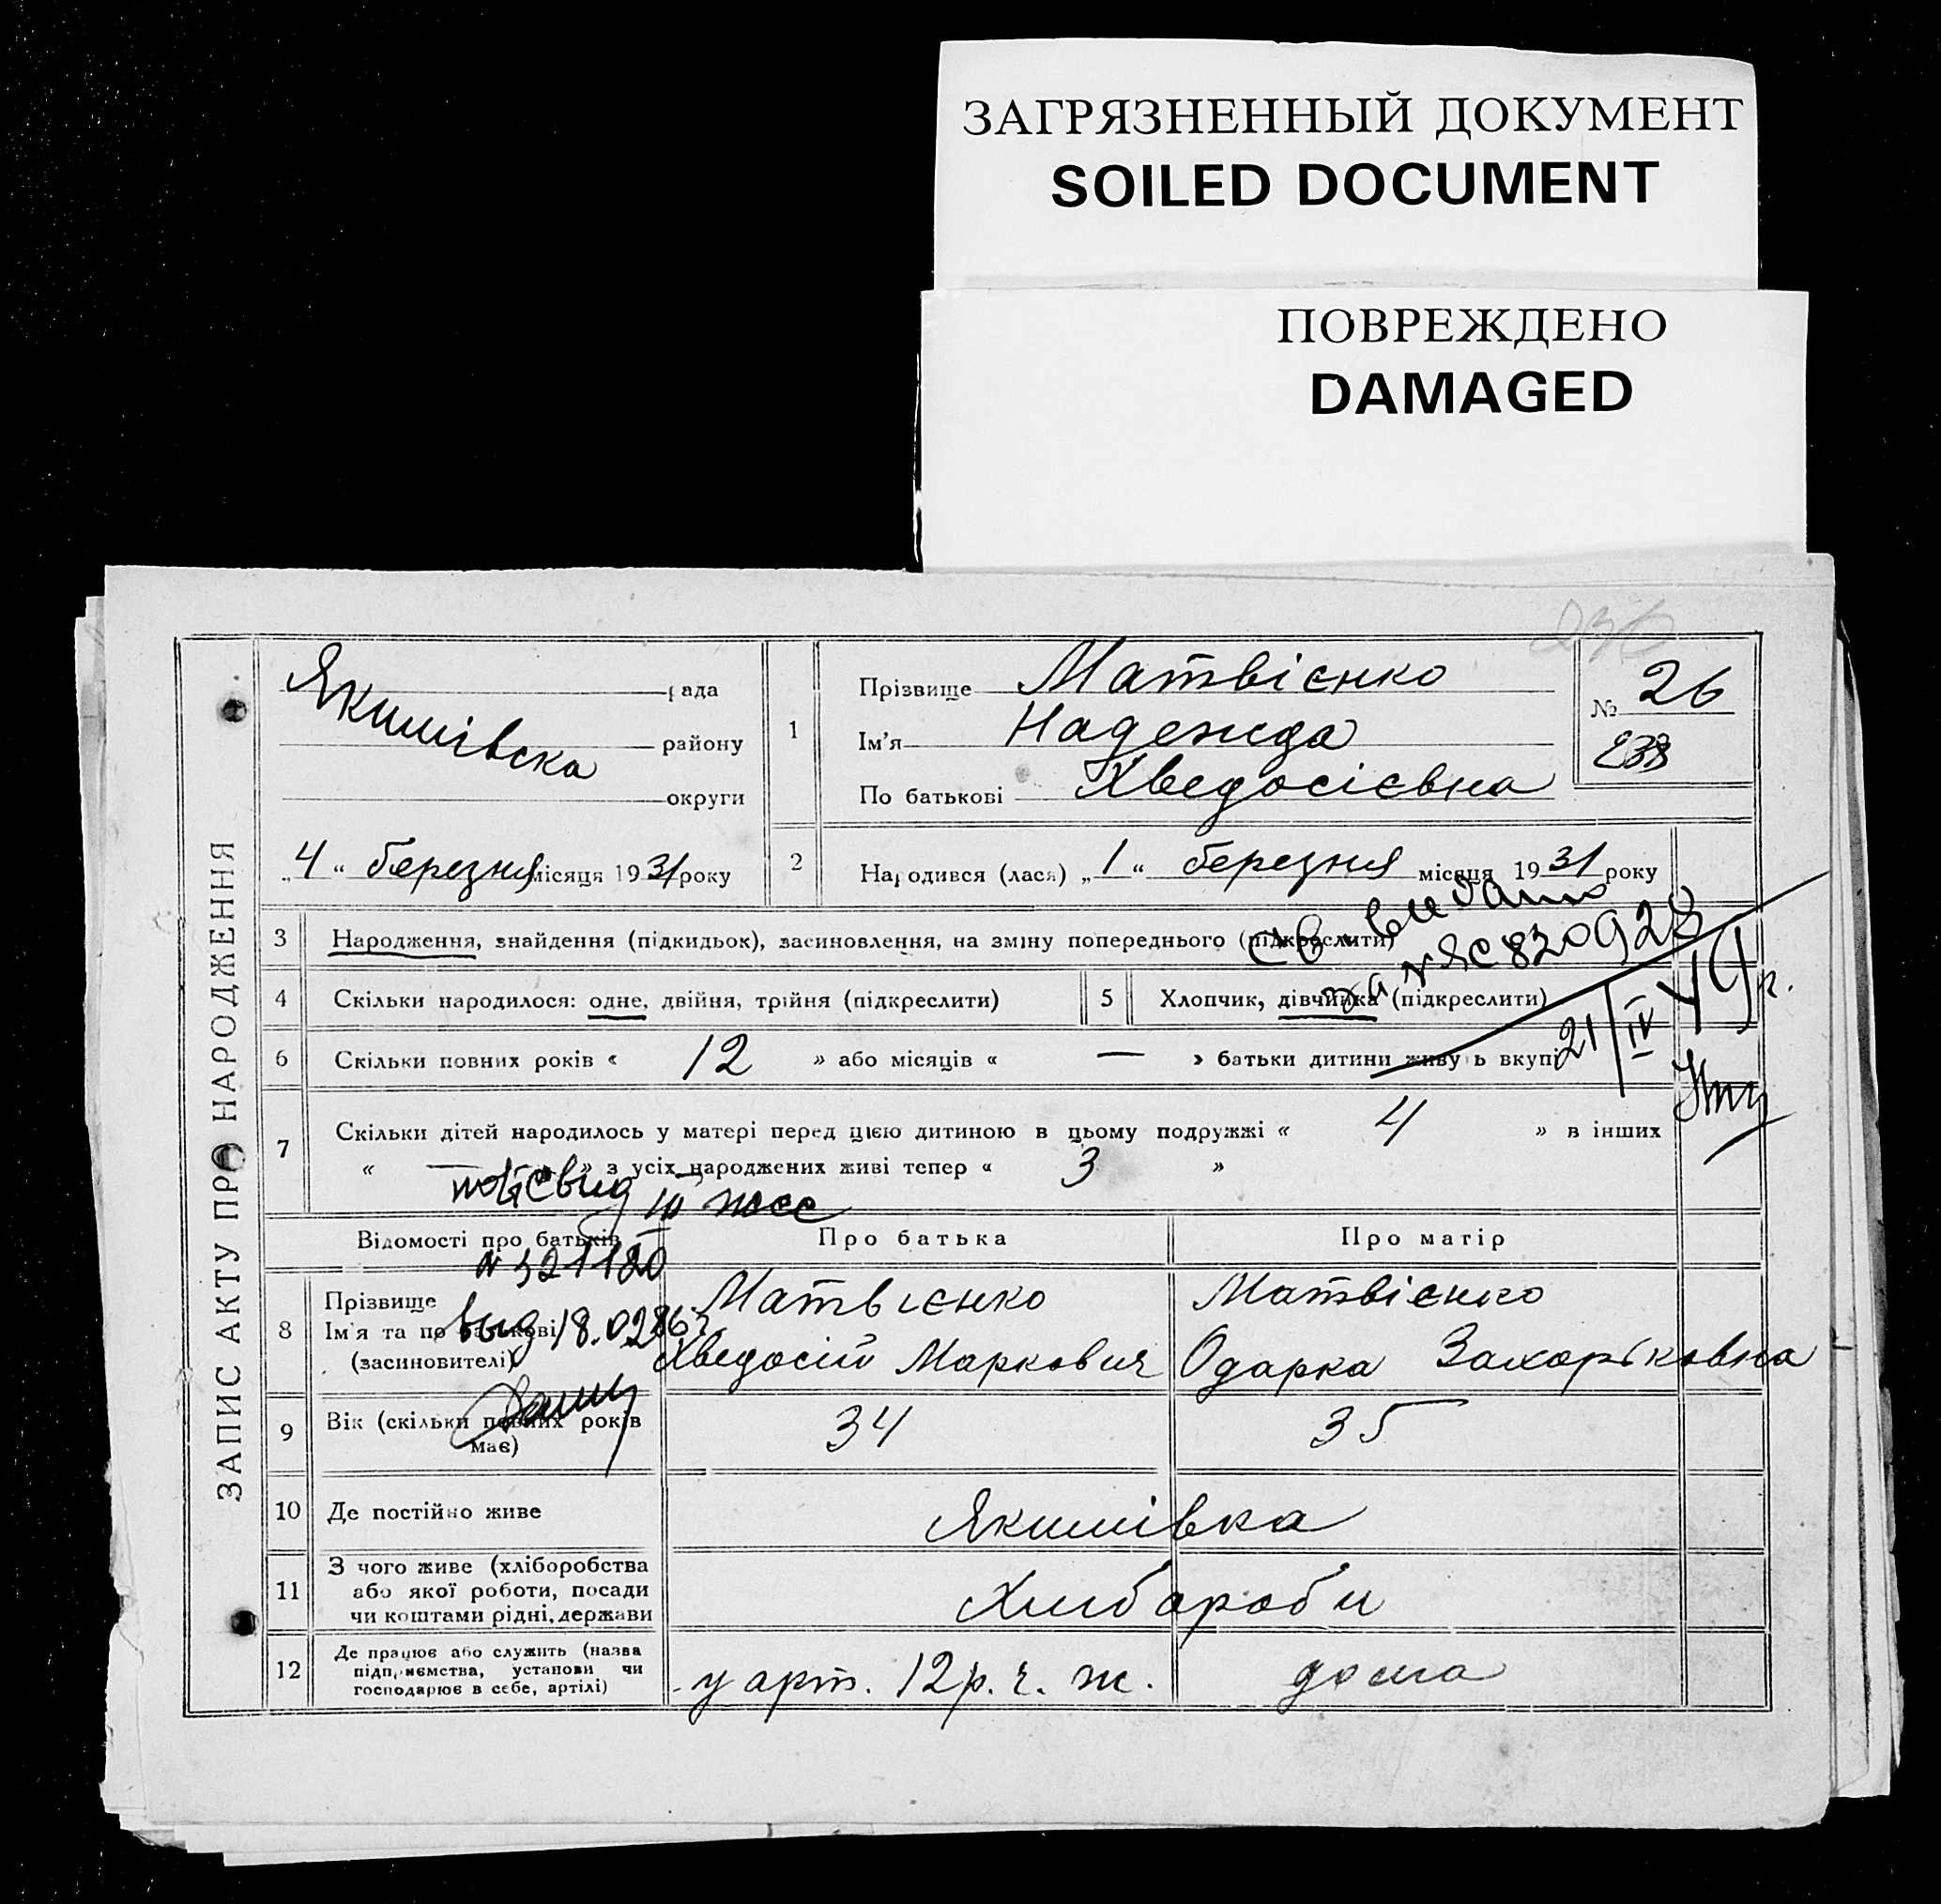 ЗАГРЯЗНЕННЫЙ ДОКУМЕНТ
SOILED DOCUMENT
ПОВРЕЖДЕНО
DAMAGED
ЗАПИС АКТУ ПРО НАРОДЖЕННЯ
Якимівська рада
району
округи
„4“ березня місяця 1931 року
1 Прізвище Матвієнко
Ім'я Надежда
По батькові Хведосієвна
№ 26
238
2 Народився (лася) „1“ березня місяця 1931 року
3 Народження, знайдення (підкидьок), засиновлення, на зміну попереднього (підкреслити)
св. видано
за № ЯС 820928
21/IV 49 г.
4 Скільки народилося: одне, двійня, трійня (підкреслити)
5 Хлопчик, дівчинка (підкреслити)
6 Скільки повних років « 12 » або місяців « — » батьки дитини живуть вкупі
7 Скільки дітей народилось у матері перед цією дитиною в цьому подружжі « 4 » в інших
« — » з усіх народжених живі тепер « 3 »
повт свид
№ 321180
выд 18.0286г
Відомості про батьків
Про батька
Про матір
8 Прізвище
Ім'я та по батькові
(засиновителі)
Матвієнко
Хведосій Маркович
Матвієнко
Одарка Захарʼковна
9 Вік (скільки повних років
має)
34
35
10 Де постійно живе
Якимівка
11 З чого живе (хліборобства
або якої роботи, посади
чи коштами рідні, держави
Хлібороби
12 Де працює або служить (назва
підприємства, установи чи
господарює в себе, артілі)
у арт. 12 р. г. ж.
дома